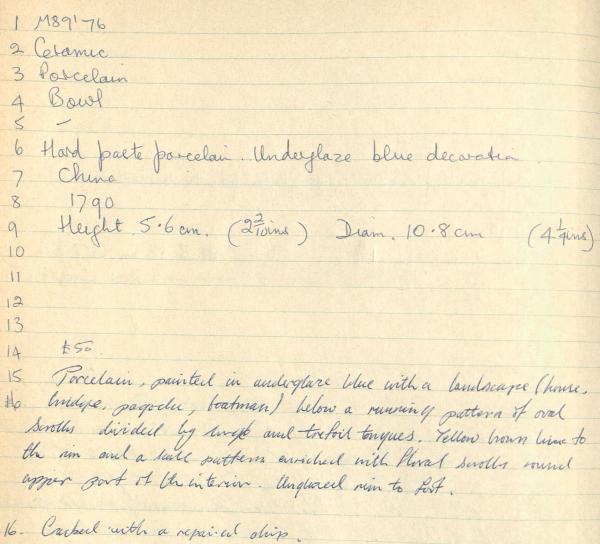 1 M89'76
2 Ceramic
3 Porcelain
4 Bowl
5 -
6 Hard paste porcelain. Underglaze blue decoration.
7 China
8 1790
9 Height. 5.6 cm. (2 2/10 ins) Diam. 10.8 cm (4 1/4 ins)
10
11
12
13
14 £50
15 Porcelain, painted in underglaze blue with a landscape (house,
bridge, pagoda, boatman) below a running pattern of oval
scrolls divided by and trefoil tongues. Yellow brown line to
the rim and a scale pattern enriched with floral scrolls round
upper part of the interior. Unglazed rim to foot.
16. Cracked with a repaired chip.